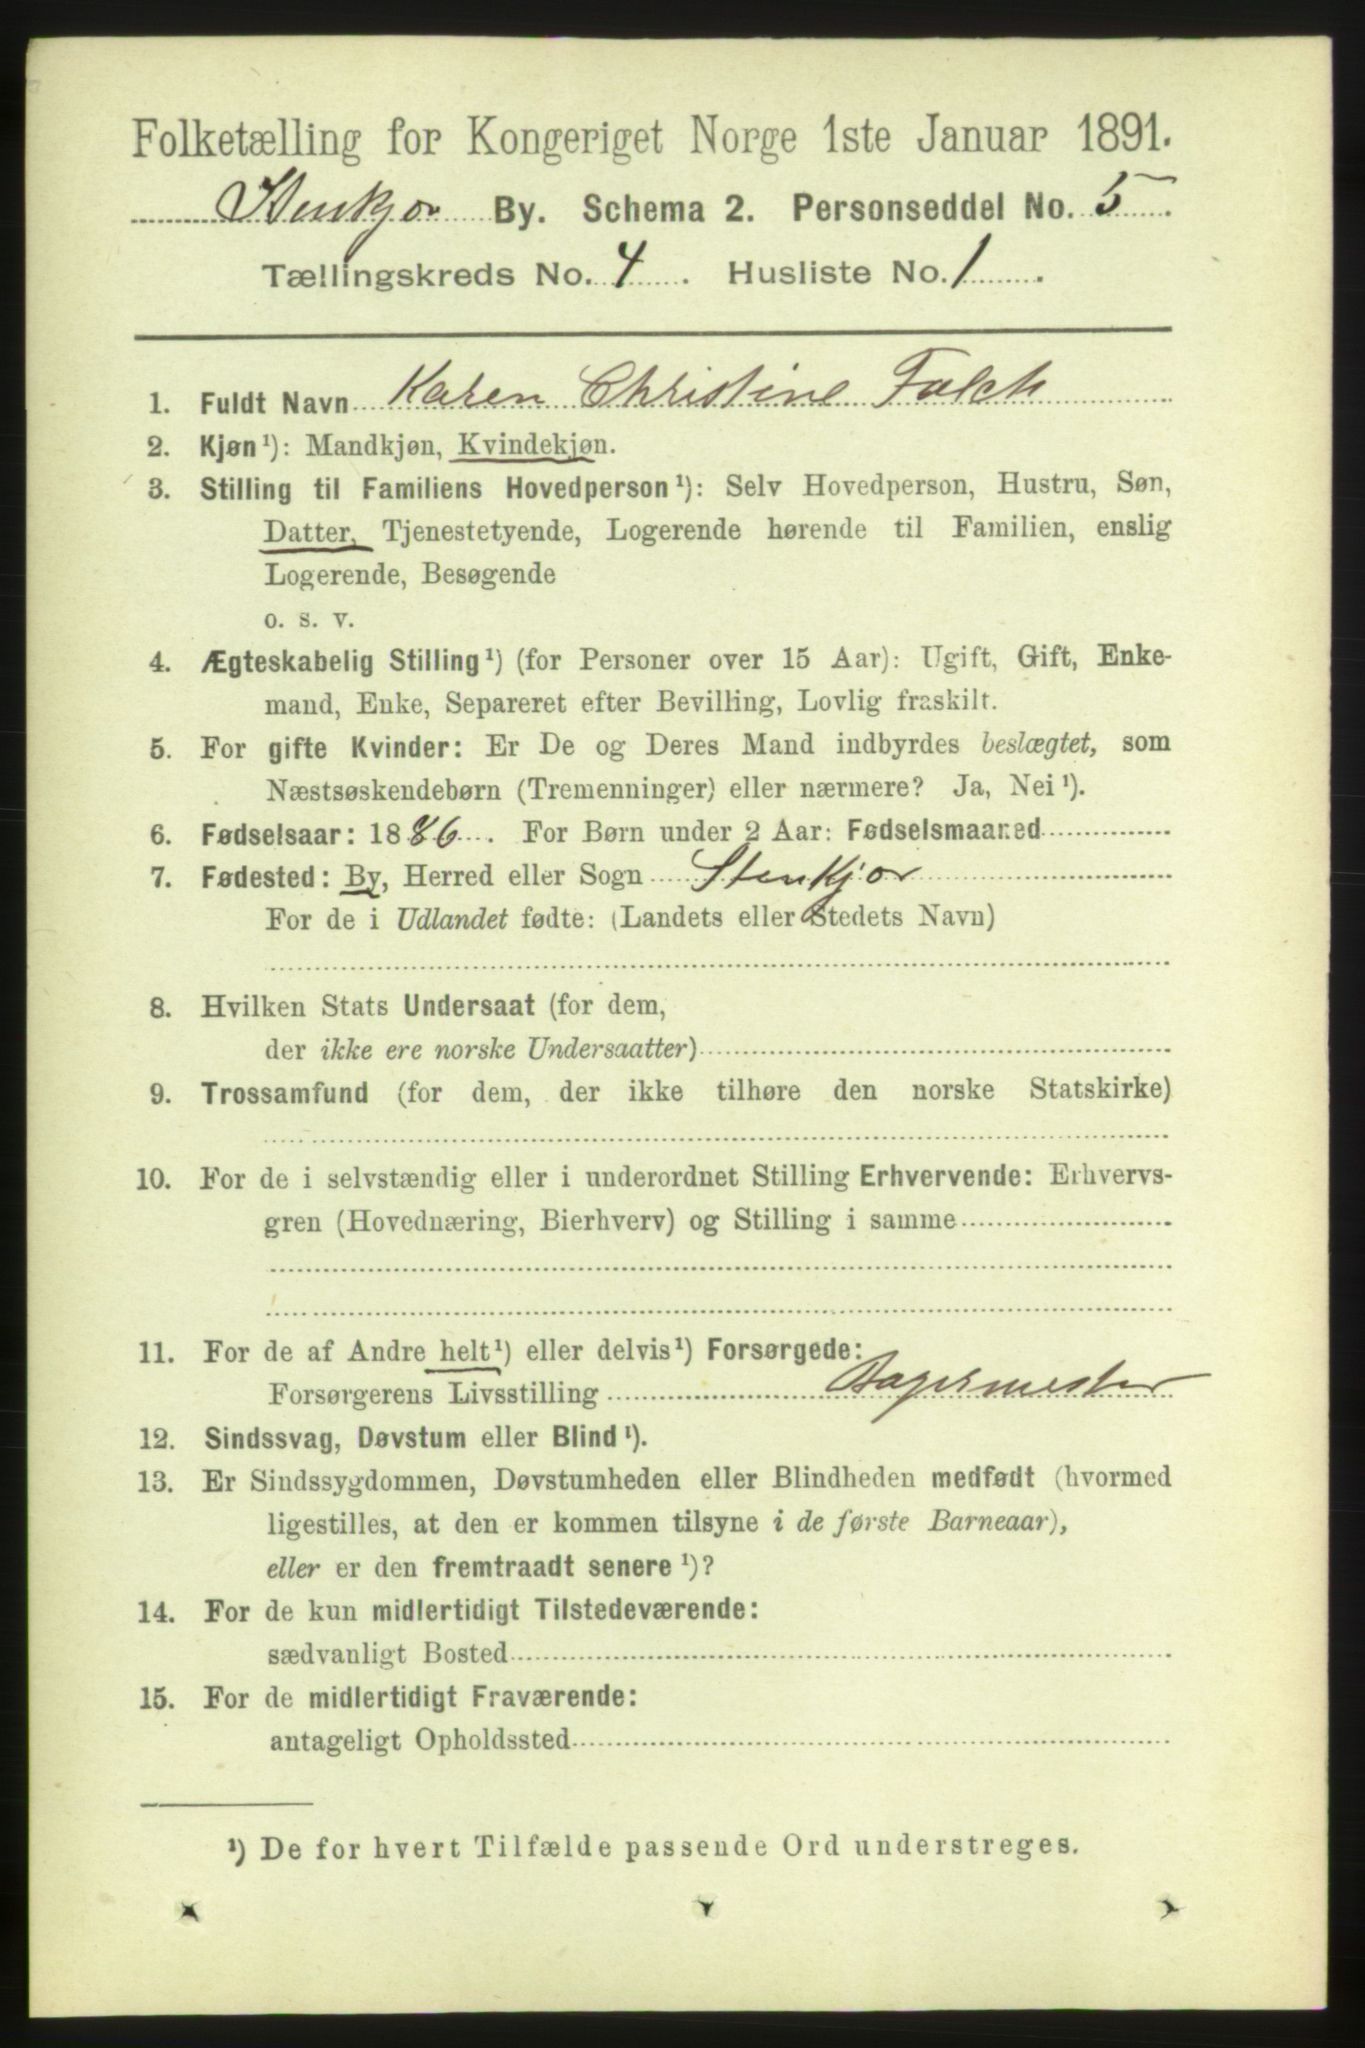 Folketælling for Kongeriget Norge 1ste Januar 1891.
Stenkjør By. Schema 2. Personseddel No. 5.
Tællingskreds No. 4. Husliste No. 1.
1. Fuldt Navn Karen Christine Falch
2. Kjøn¹): Mandkjøn, Kvindekjøn.
3. Stilling til Familiens Hovedperson¹): Selv Hovedperson, Hustru, Søn,
Datter, Tjenestetyende, Logerende hørende til Familien, enslig
Logerende, Besøgende
o. s. v.
4. Ægteskabelig Stilling¹) (for Personer over 15 Aar): Ugift, Gift, Enke-
mand, Enke, Separeret efter Bevilling, Lovlig fraskilt.
5. For gifte Kvinder: Er De og Deres Mand indbyrdes beslægtet, som
Næstsøskendebørn (Tremenninger) eller nærmere? Ja, Nei¹).
6. Fødselsaar: 1886. For Børn under 2 Aar: Fødselsmaaned
7. Fødested: By, Herred eller Sogn Stenkjør
For de i Udlandet fødte: (Landets eller Stedets Navn)
8. Hvilken Stats Undersaat (for dem,
der ikke ere norske Undersaatter)
9. Trossamfund (for dem, der ikke tilhøre den norske Statskirke)
10. For de i selvstændig eller i underordnet Stilling Erhvervende: Erhvervs-
gren (Hovednæring, Bierhverv) og Stilling i samme
11. For de af Andre helt¹) eller delvis¹) Forsørgede:
Forsørgerens Livsstilling Bagermester
12. Sindssvag, Døvstum eller Blind¹).
13. Er Sindssygdommen, Døvstumheden eller Blindheden medfødt (hvormed
ligestilles, at den er kommen tilsyne i de første Barneaar),
eller er den fremtraadt senere¹)?
14. For de kun midlertidigt Tilstedeværende:
sædvanligt Bosted
15. For de midlertidigt Fraværende:
antageligt Opholdssted
¹) De for hvert Tilfælde passende Ord understreges.